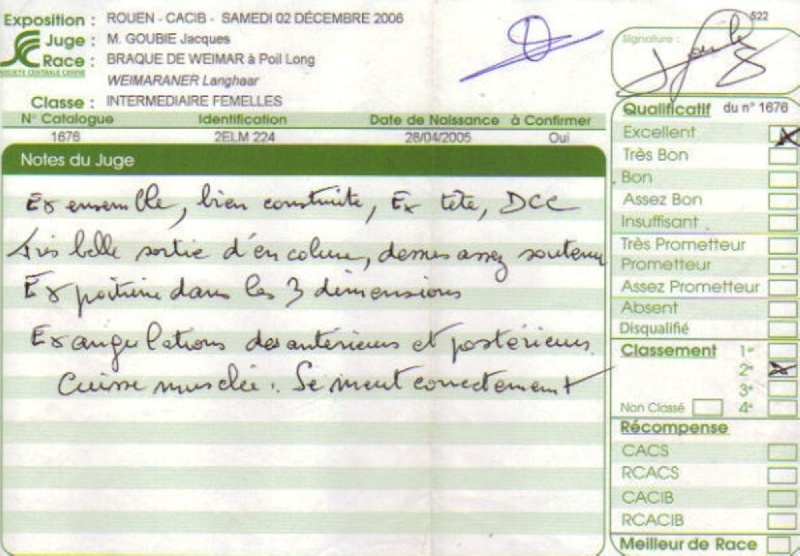 Exposition : ROUEN - CACIB - SAMEDI 02 DÉCEMBRE 2006
Juge : M. GOUBIE Jacques
Race : BRAQUE DE WEIMAR à Poil Long
SOCIETE CENTRALE CANINE
WEIMARANER Langhaar
Classe : INTERMEDIAIRE FEMELLES
N° Catalogue Identification Date de Naissance à Confirmer
1676 2ELM 224 28/04/2005 Oui
Notes du Juge
Ex ensemble, bien construite, Ex tête, DCC
très belle sortie d'encolure, dessus assez soutenu
Ex poitrine dans les 3 dimensions
Ex angulations des antérieurs et postérieurs
Cuisse musclée. Se meut correctement
522
Signature :
Qualificatif du n° 1676
Excellent
Très Bon
Bon
Assez Bon
Insuffisant
Très Prometteur
Prometteur
Assez Prometteur
Absent
Disqualifié
Classement 1er
2e
3e
Non Classé 4e
Récompense
CACS
RCACS
CACIB
RCACIB
Meilleur de Race